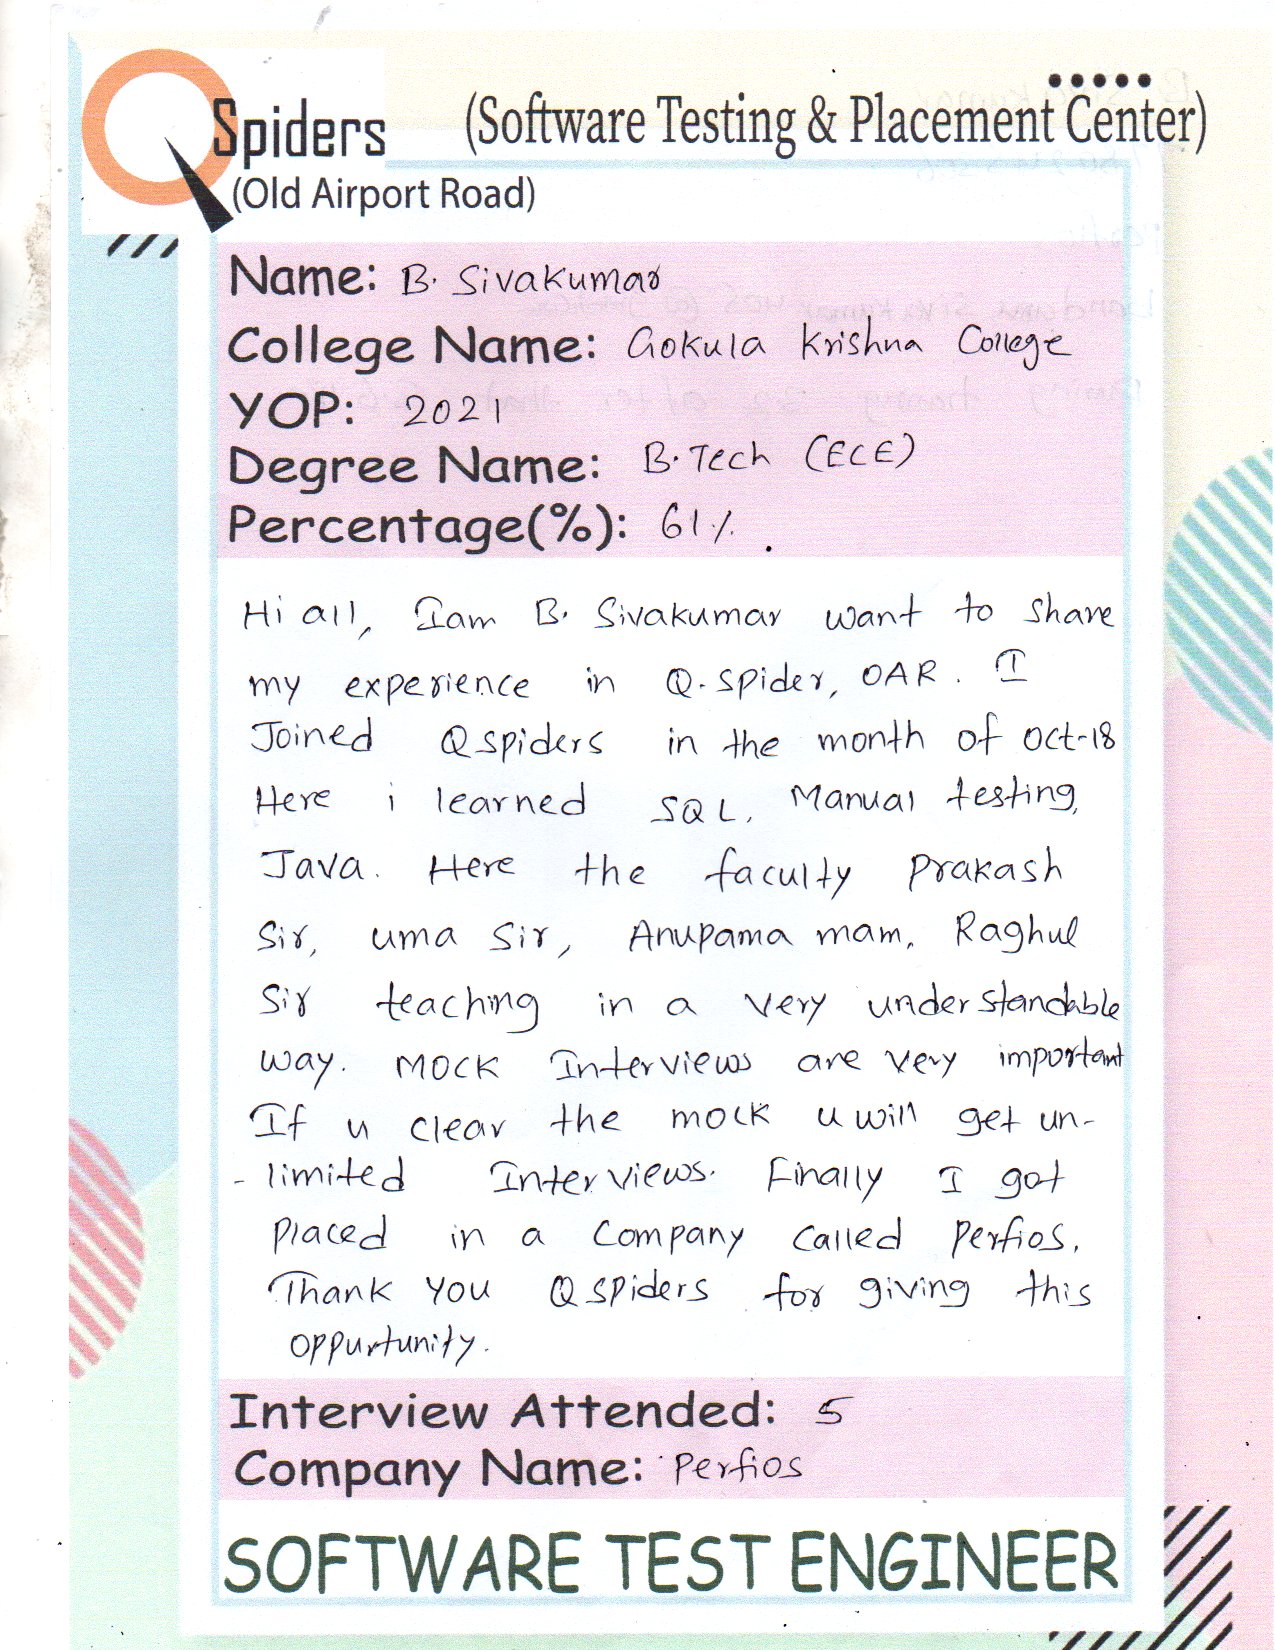 QSpiders (Software Testing & Placement Center)
(Old Airport Road)
Name: B. Sivakumar
College Name: Gokula Krishna College
YOP: 2021
Degree Name: B.Tech (ECE)
Percentage(%): 61%.
Hi all, Iam B. Sivakumar want to share
my experience in Q-spider, OAR. I
Joined Qspiders in the month of oct-18
Here i learned SQL, Manual testing,
Java. Here the faculty Prakash
Sir, uma Sir, Anupama mam, Raghul
Sir teaching in a very understandable
way. Mock Interviews are very important
If u clear the mock u will get un-
- limited Interviews. Finally I got
placed in a company called Perfios.
Thank you Qspiders for giving this
oppurtunity.
Interview Attended: 5
Company Name: Perfios
SOFTWARE TEST ENGINEER